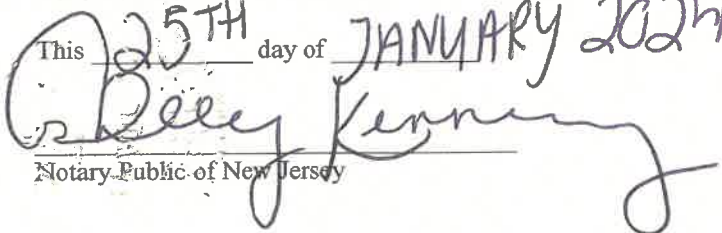 This 25TH day of JANUARY 2024
Kennedy
Notary Public of New Jersey